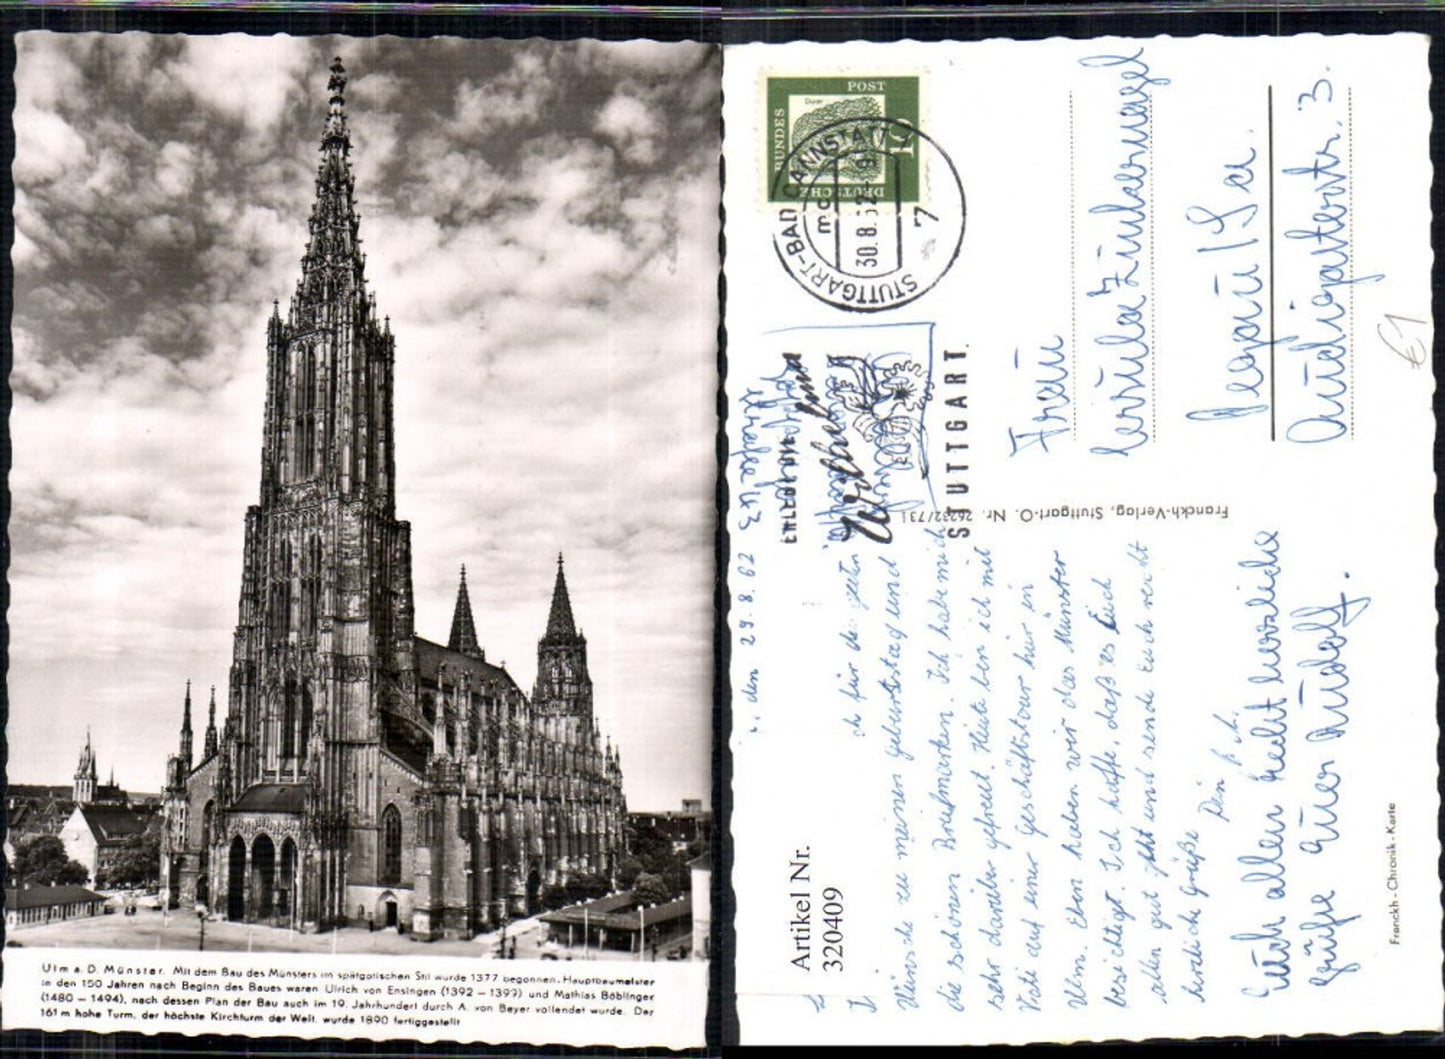 Ulm a. D. Münster. Mit dem Bau des Münsters im spätgotischen Stil wurde 1377 begonnen. Hauptbaumeister
in den 150 Jahren nach Beginn des Baues waren Ulrich von Ensingen (1392 – 1399) und Mathias Böblinger
(1480 – 1494), nach dessen Plan der Bau auch im 19. Jahrhundert durch A. von Beyer vollendet wurde. Der
161 m hohe Turm, der höchste Kirchturm der Welt, wurde 1890 fertiggestellt
DEUTSCHE BUNDESPOST
Dürer
10
STUTTGART-BAD CANNSTATT
30.8.62
7
STUTTGART
Wilhelma
STUTTGART
Frau
Ursula
€1
Franckh-Verlag, Stuttgart-O. Nr. 26232/731
Artikel Nr.
320409
den 29.8.62
für die guten
Wünsche zu meinem Geburtstag und
die schönen Briefmarken. Ich habe mich
sehr darüber gefreut. Heute bin ich mit
Vati auf einer Geschäftstour hier in
Ulm. Eben haben wir das Münster
besichtigt. Ich hoffe, daß es Euch
allen gut geht und sende Euch recht
herzliche Grüße
Dein
Euch allen herzliche
Grüße Euer Rudolf.
Franckh - Chronik - Karte